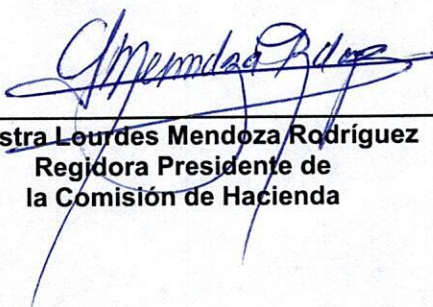 stra Lourdes Mendoza Rodríguez
Regidora Presidente de
la Comisión de Hacienda